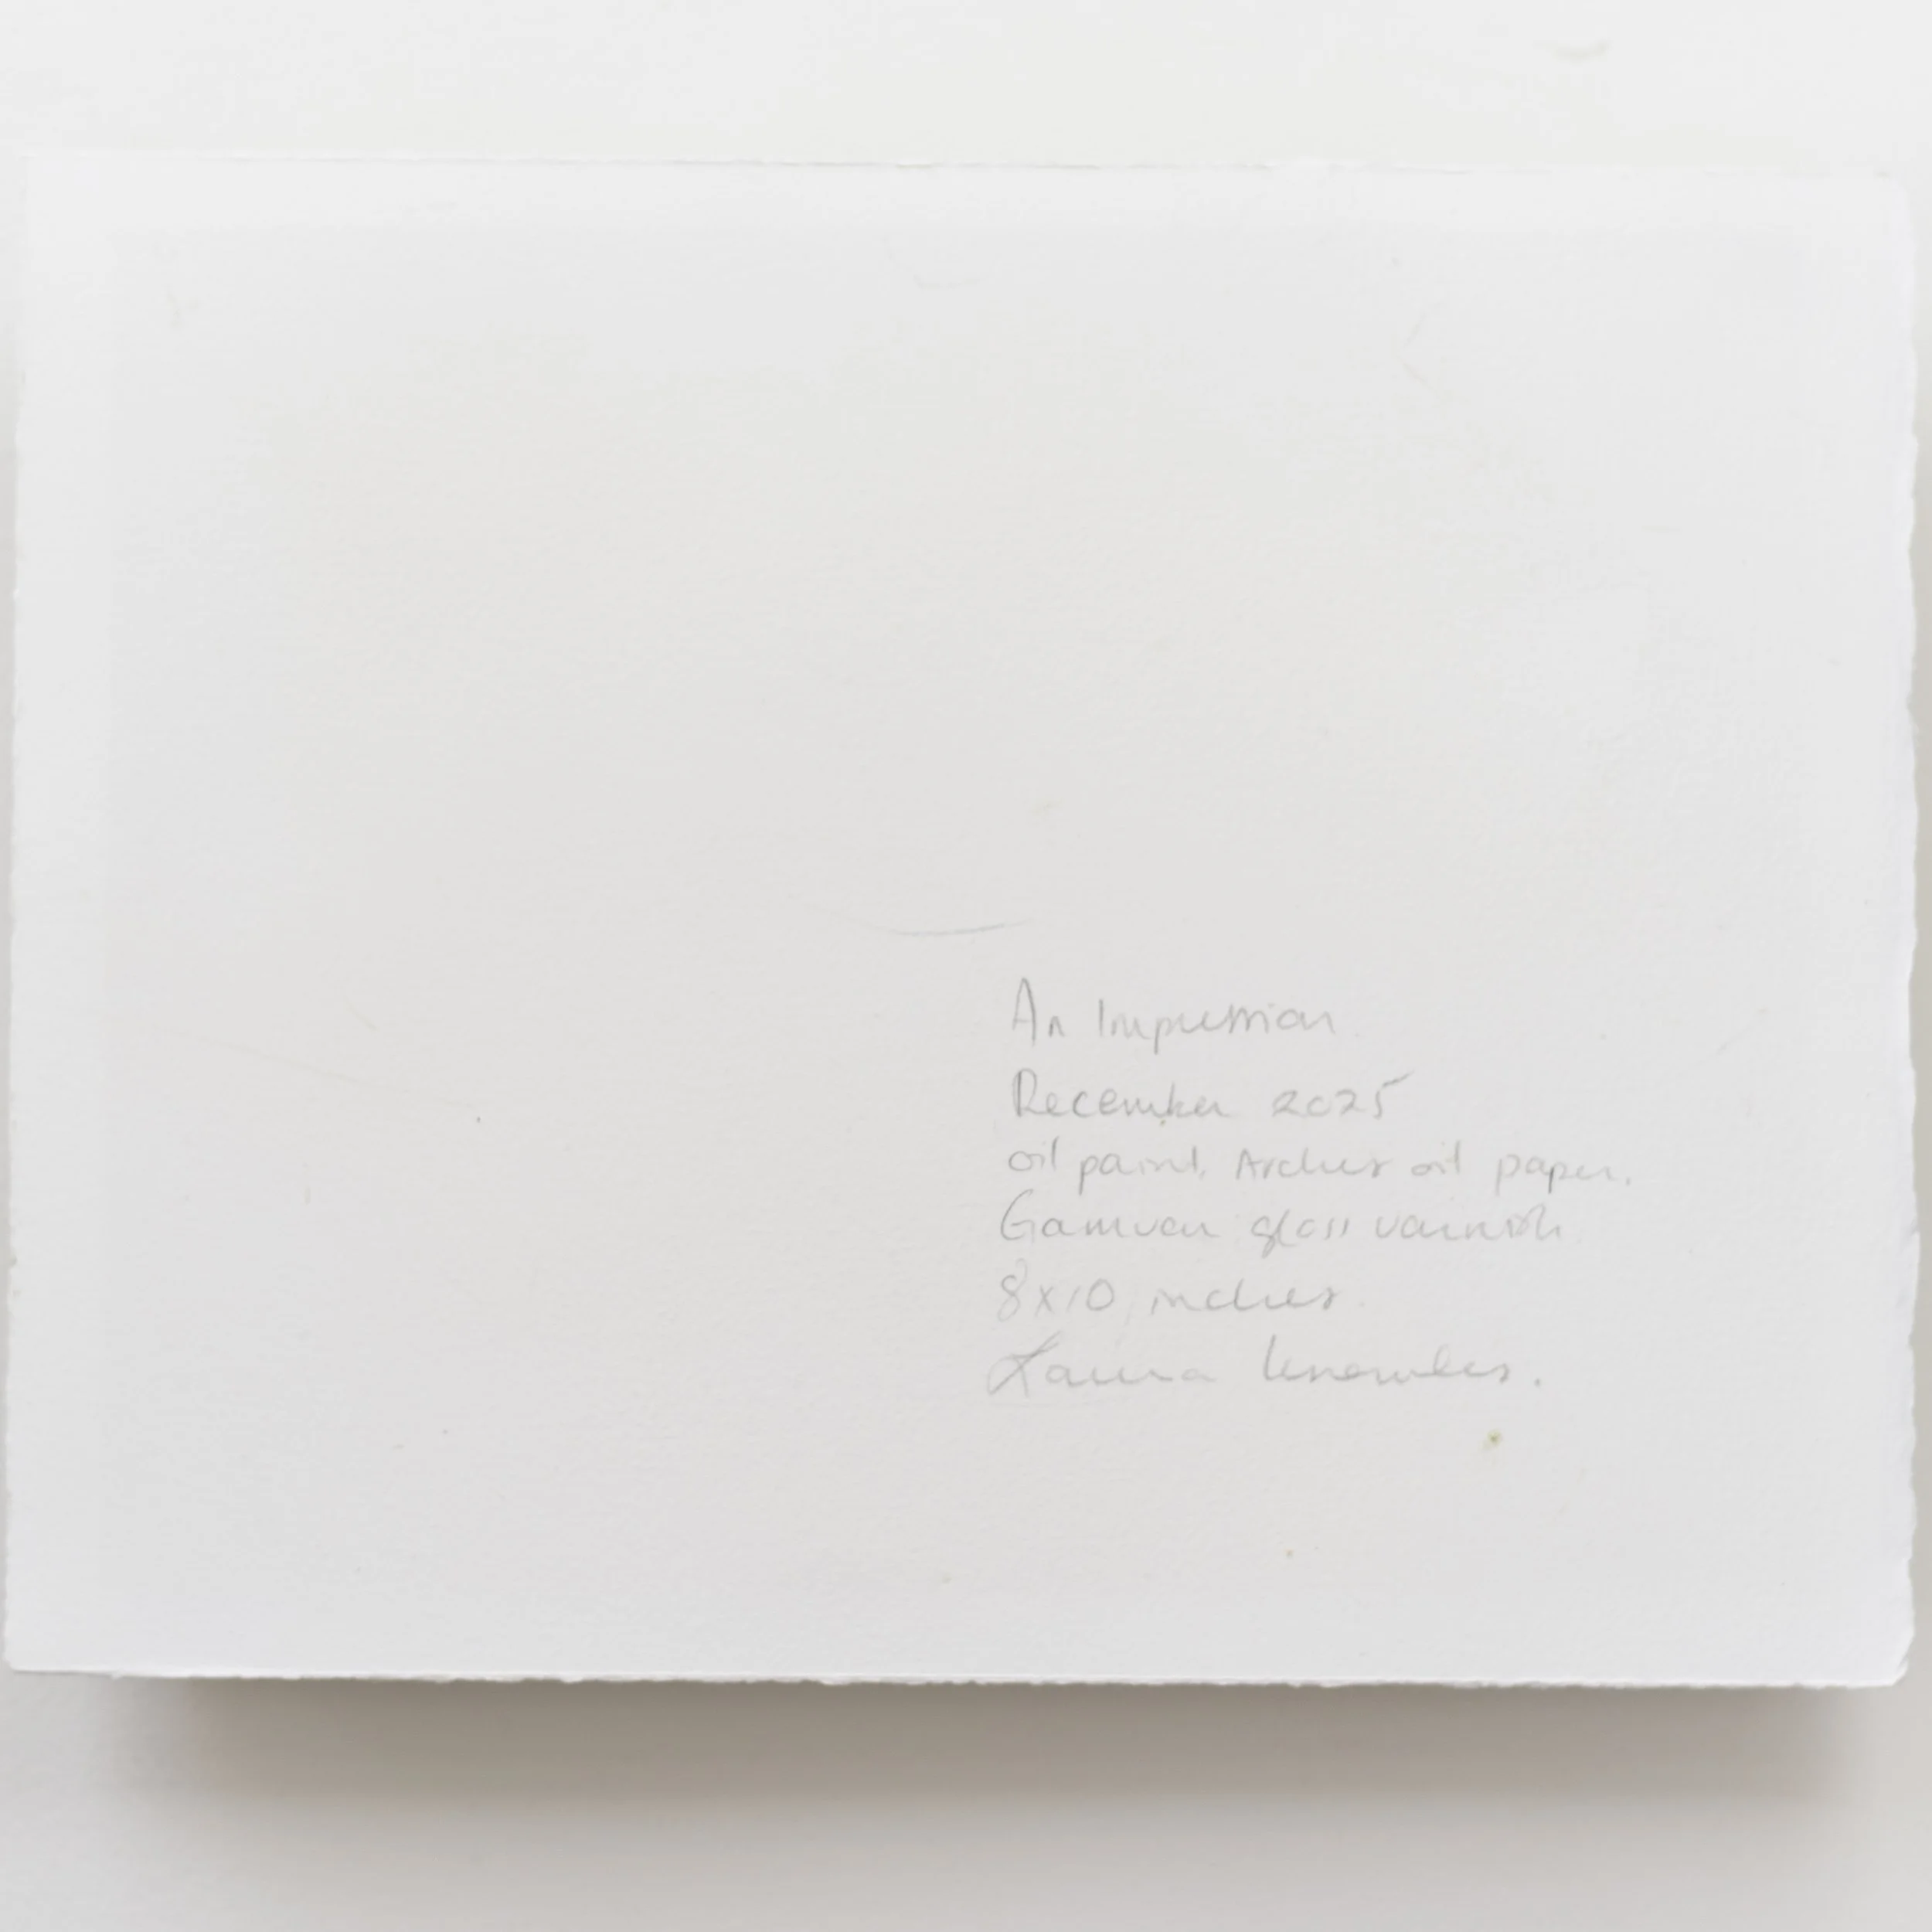 An Impression
December 2025
oil paint, Arches oil paper.
Gamvar gloss varnish
8x10 inches
Laura Knowles.